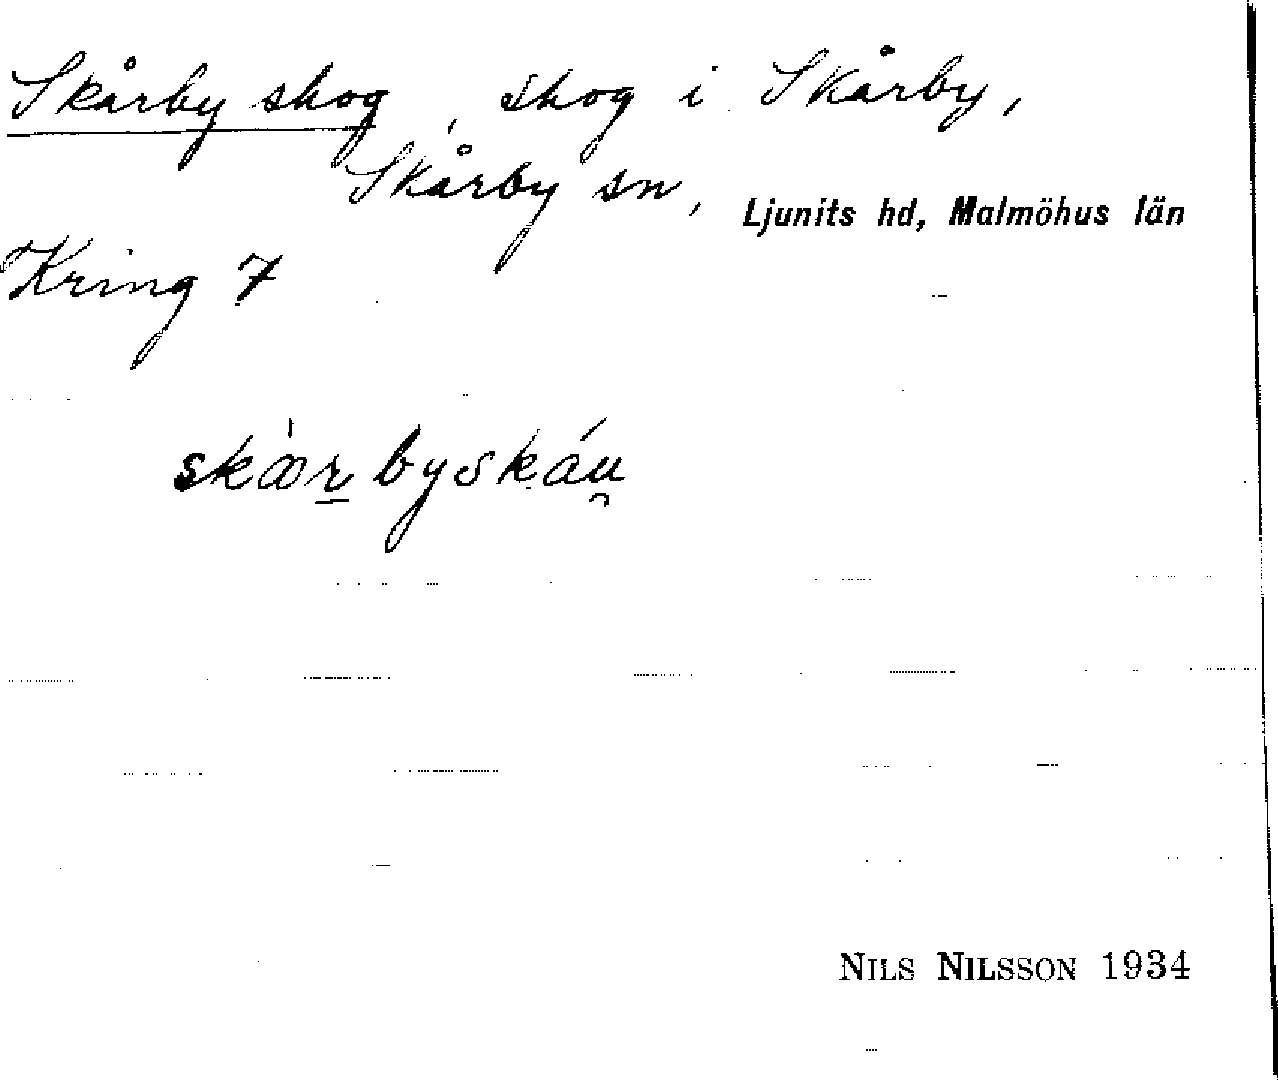 Skårby skog, skog i Skårby,
Skårby sn, Ljunits hd, Malmöhus län
Kring 7
skæ̀r̲byskáu̯
NILS NILSSON 1934